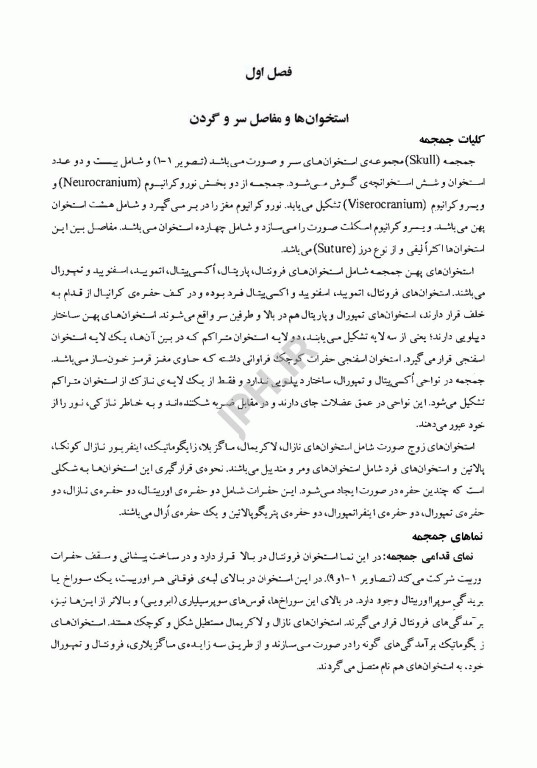 فصل اول
استخوان‌ها و مفاصل سر و گردن
کلیات جمجمه
جمجمه (Skull) مجموعه‌ی استخوان‌های سر و صورت می‌باشد (تصویر ۱-۱) و شامل بیست و دو عدد
استخوان و شش استخوانچه‌ی گوش می‌شود. جمجمه از دو بخش نوروکرانیوم (Neurocranium) و
ویسروکرانیوم (Viserocranium) تشکیل می‌یابد. نوروکرانیوم مغز را در بر می‌گیرد و شامل هشت استخوان
پهن می‌باشد. ویسروکرانیوم اسکلت صورت را می‌سازد و شامل چهارده استخوان می‌باشد. مفاصل بین این
استخوان‌ها اکثراً لیفی و از نوع درز (Suture) می‌باشد.
استخوان‌های پهن جمجمه شامل استخوان‌های فرونتال، پاریتال، اُکسی‌پیتال، اتموئید، اسفنوئید و تمپورال
می‌باشند. استخوان‌های فرونتال، اتموئید، اسفنوئید و اکسی‌پیتال فرد بوده و در کف حفره‌ی کرانیال از قدام به
خلف قرار دارند، استخوان‌های تمپورال و پاریتال هم در بالا و طرفین سر واقع می‌شوند. استخوان‌های پهن ساختار
دیپلویی دارند؛ یعنی از سه لایه تشکیل می‌یابند، دو لایه استخوان متراکم که در بین آن‌ها، یک لایه استخوان
اسفنجی قرار می‌گیرد. استخوان اسفنجی حفرات کوچک فراوانی داشته که حاوی مغز قرمز خون‌ساز می‌باشد.
جمجمه در نواحی اُکسی‌پیتال و تمپورال، ساختار دیپلویی ندارد و فقط از یک لایه‌ی نازک از استخوان متراکم
تشکیل می‌شود. این نواحی در عمق عضلات جای دارند و در مقابل ضربه شکننده‌اند و به خاطر نازکی، نور را از
خود عبور می‌دهند.
استخوان‌های زوج صورت شامل استخوان‌های نازال، لاکریمال، ماگزیلا، زایگوماتیک، اینفریور نازال کونکا،
پالاتین و استخوان‌های فرد شامل استخوان‌های ومر و مندیبل می‌باشند. نحوه‌ی قرارگیری این استخوان‌ها به شکلی
است که چندین حفره در صورت ایجاد می‌شود. این حفرات شامل دو حفره‌ی اوربیتال، دو حفره‌ی نازال، دو
حفره‌ی تمپورال، دو حفره‌ی اینفراتمپورال، دو حفره‌ی پتریگوپالاتین و یک حفره‌ی اُرال می‌باشند.
نماهای جمجمه
نمای قدامی جمجمه: در این نما استخوان فرونتال در بالا قرار دارد و در ساخت پیشانی و سقف حفرات
وربیت شرکت می‌کند (تصاویر ۱-۱و۹). در این استخوان در بالای لبه‌ی فوقانی هر اوربیت، یک سوراخ یا
بریدگی سوپرااوربیتال وجود دارد. در بالای این سوراخ‌ها، قوس‌های سوپرسیلیاری (ابرویی) و بالاتر از این‌ها نیز،
برآمدگی‌های فرونتال قرار می‌گیرند. استخوان‌های نازال و لاکریمال مستطیل شکل و کوچک هستند. استخوان‌های
زیگوماتیک برآمدگی‌های گونه را در صورت می‌سازند و از طریق سه زایده‌ی ماگزیلاری، فرونتال و تمپورال
خود، به استخوان‌های هم نام متصل می‌گردند.
JPH.IR